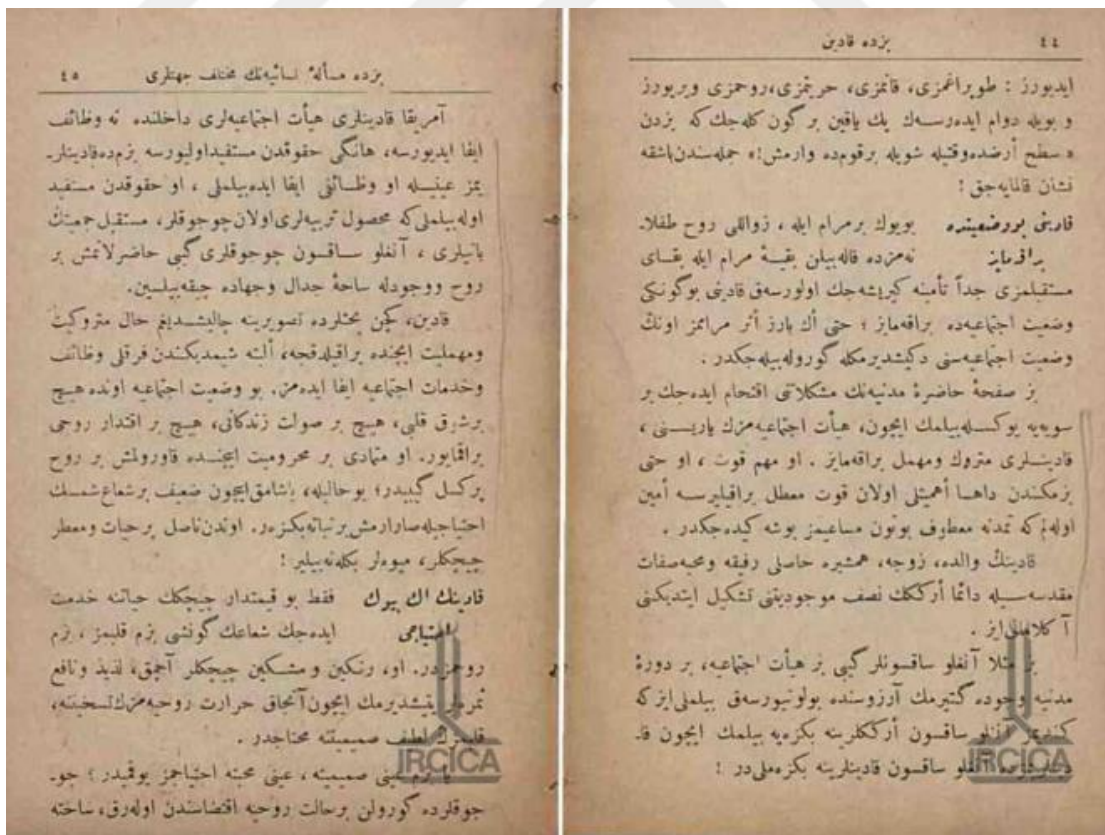 ٤٤
بزده قادين
ايدييورز : طوپراغمزى، قانمزى، حريتمزى، روحمزى ويرييورز
و بويله دوام ايدەرسەك پك ياقين بر گون كله‌جك كه بزدن
« سطح أرضده وقتيله شويله برقوم ده وارمش! » جمله‌سندن باشقه
نشان قالمايه‌جق !
قادينى بو وضعيتده بويوك بر مرام ايله ، زواللى روح طفلا-
براقه‌مايز نه‌مزده قاله‌بيلن بقيۀ مرام ايله بقاى
مستقبلمزى جداً تأمينه كيريشه‌جك اولورسه‌ق قادينى بوگونكى
وضعيت اجتماعيه‌ده براقه‌مايز ؛ حتى أڭ بارز أثر مرامز اونڭ
وضعيت اجتماعيه‌سنى دكيشديرمكله گوروله‌بيله‌جكدر .
بز صفحۀ حاضرۀ مدنيه‌نك مشكلاتنى اقتحام ايده‌جك بر
سويه‌يه يوكسله‌بيلمك ايچون، هيأت اجتماعيه‌مزك ياريسنى ،
قادينلرى متروك ومهمل براقه‌مايز . او مهم قوت ، او حتى
بزمكندن داها أهميتلى اولان قوت معطل براقيليرسه أمين
اوله‌لم كه تمدنه معطوف بوتون مساعيمز بوشه كيده‌جكدر .
قادينڭ والده، زوجه، همشيره حاصلى رفيقه ومحبه صفات
مقدسه‌سيله دائما أرككك نصف موجوديتنى تشكيل ايتديكنى
آ كلامالى‌ايز .
بز مثلا آنغلو ساقسونلر گبى بر هيأت اجتماعيه، بر دورۀ
مدنيه وجوده گتيرمك آرزوسنده بولونيورسه‌ق بيلملى‌ايز كه
كنديمز آنغلو ساقسون أرككلرينه بكزه‌يه بيلمك ايچون قا-
دينلرمزده آنغلو ساقسون قادينلرينه بكزه‌ملى‌در !
IRCICA
بزده مسألۀ نسائيه‌نك مختلف جهتلرى
٤٥
آمريقا قادينلرى هيأت اجتماعيه‌لرى داخلنده نه وظائف
ايفا ايدييورسه، هانگى حقوقدن مستفيد اولييورسه بزم‌ده قادينلر-
يمز عينيله او وظائفى ايفا ايده‌بيلملى ، او حقوقدن مستفيد
اوله‌بيلملى كه محصول تربيه‌لرى اولان چوجوقلر، مستقبل جمعيتڭ
بانيلرى ، آنغلو ساقسون چوجوقلرى گبى حاضرلانمش بر
روح ووجودله ساحۀ جدال وجهاده چيقه‌بيلسين.
قادين، كچن بحثلرده تصويرينه چاليشديغم حال متروكيت
ومهمليت ايچنده براقيلدقجه، ألبته شيمديكندن فرقلى وظائف
وخدمات اجتماعيه ايفا ايده‌مز. بو وضعيت اجتماعيه اونده هيچ
برشرق قلبى، هيچ بر صولت زندگانى، هيچ بر اقتدار روحى
براقمايور. او متمادى بر محروميت ايچنده قاورولمش بر روح
پركسل گيبيدر؛ بو حاليله، ياشامق ايچون ضعيف بر شعاع شمسك
احتياجيله صارارمش بر نباته بكزر. اوندن ناصل بر حيات ومعطر
چيچكلر، ميوه‌لر بكله‌نه‌بيلير !
قادينك اڭ بيوك فقط بو قيمتدار چيچكك حياتنه خدمت
احتياجى ايده‌جك شعاعك گونشى بزم قلبمز ، بزم
روحمزدر. او، رنگين و مشكين چيچكلر آچمق، لذيذ ونافع
ثمره‌لر يتشديرمك ايچون آنجاق حرارت روحيه‌مزك تسخينه،
قلبمزك لطف صميميتنه محتاجدر .
يا بزم عينى صميميته ، عينى محبته احتياجمز يوقميدر ؟ چو-
جوقلرده گورولن برحالت روحيه اقتضاسندن اوله‌رق، ساخته
IRCICA